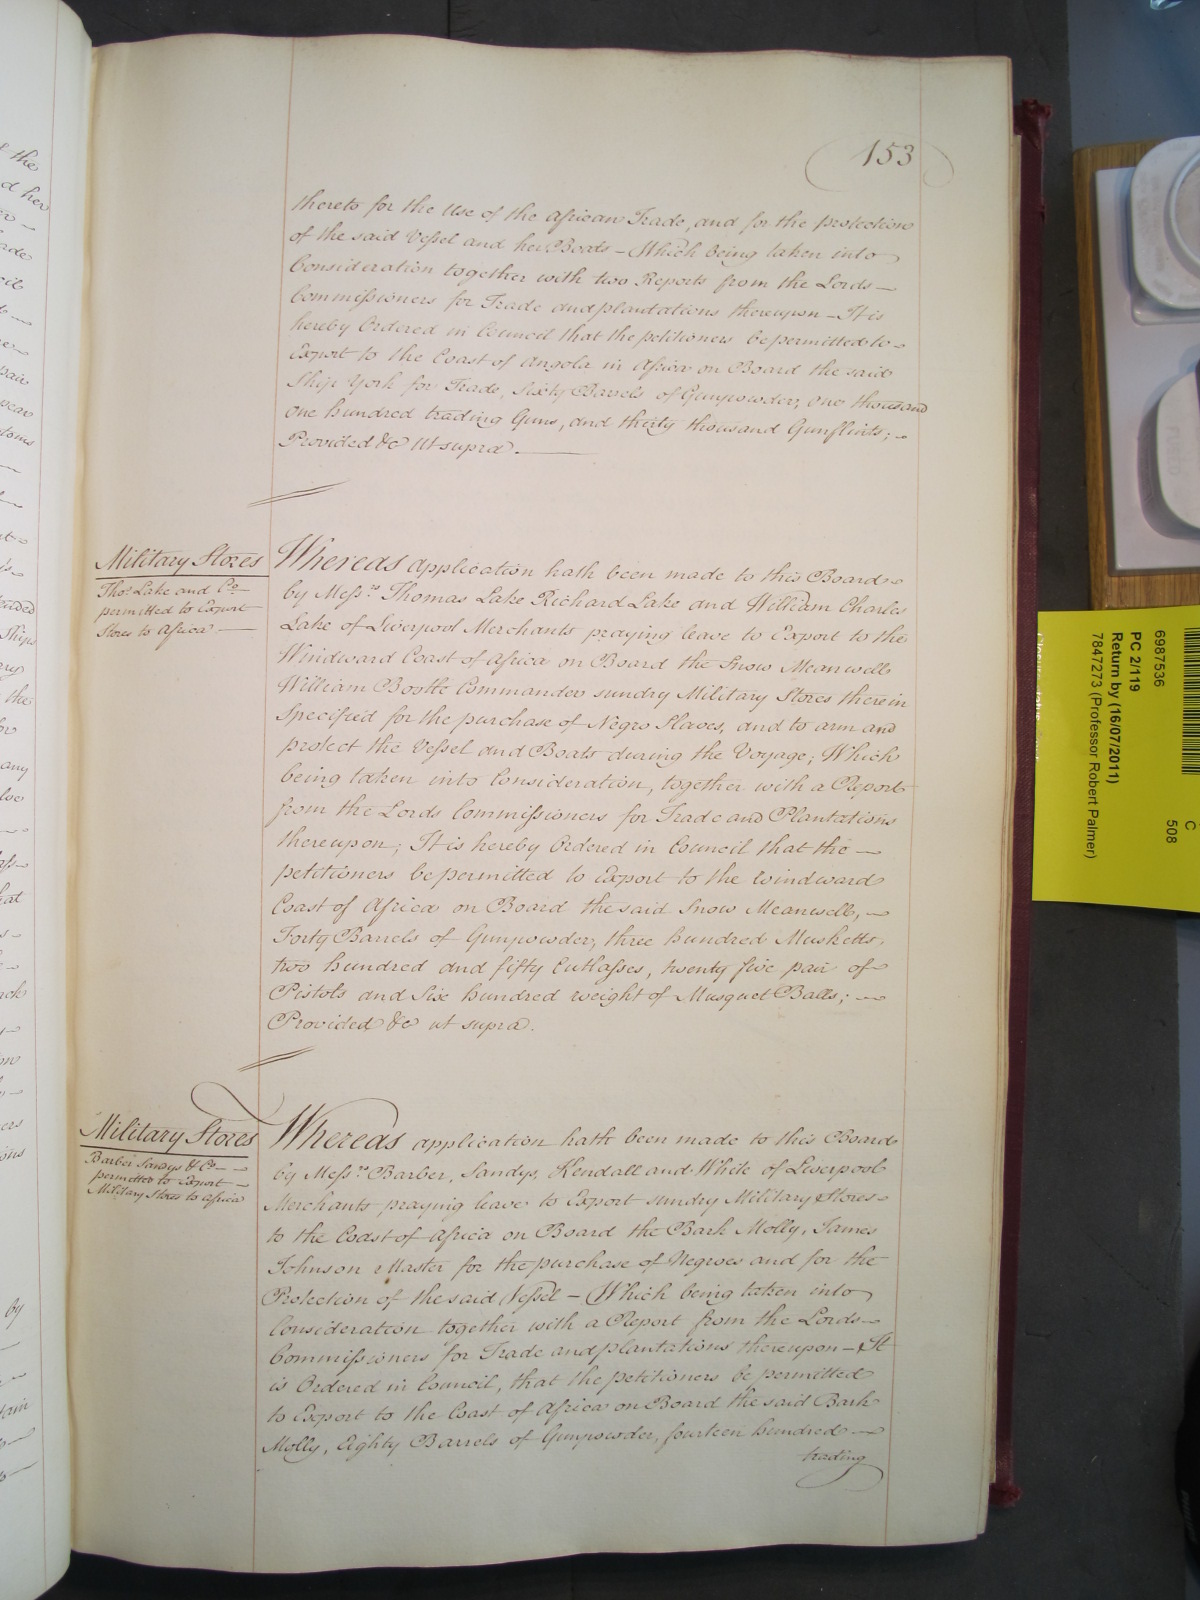 153
thereto for the Use of the African Trade, and for the protection
of the said Vessel and her Boats – Which being taken into
Consideration together with two Reports from the Lords
Commissioners for Trade and plantations thereupon – It is
hereby Ordered in Council that the petitioners be permitted to
Export to the Coast of Angola in Africa on Board the said
Ship York for Trade, Sixty Barrels of Gunpowder, one thousand
one hundred trading Guns, and thirty thousand Gunflints;
Provided &c Ut supra.
Military Stores
Thos. Lake and Co.
permitted to Export
Stores to Africa
Whereas application hath been made to this Board
by Messrs. Thomas Lake Richard Lake and William Charles
Lake of Liverpool Merchants praying leave to Export to the
Windward Coast of Africa on Board the Snow Meanwell
William Bootte Commander sundry Military Stores therein
Specified for the purchase of Negro Slaves, and to arm and
protect the Vessel and Boats during the Voyage; Which
being taken into Consideration, together with a Report
from the Lords Commissioners for Trade and Plantations
thereupon; It is hereby Ordered in Council that the
petitioners be permitted to Export to the windward
Coast of Africa on Board the said Snow Meanwell,
Forty Barrels of Gunpowder, three hundred Musketts,
two hundred and fifty Cutlasses, twenty five pair of
Pistols and Six hundred weight of Musquet Balls;
Provided &c ut supra.
Military Stores
Barber Sandys & Co.
permitted to Export
Military Stores to Africa
Whereas application hath been made to this Board
by Messrs. Barber, Sandys, Kendall and White of Liverpool
Merchants praying leave to Export sundry Military Stores
to the Coast of Africa on Board the Bark Molly, James
Johnson Master for the purchase of Negroes and for the
Protection of the said Vessel – Which being taken into
Consideration together with a Report from the Lords
Commissioners for Trade and plantations thereupon – It
is Ordered in Council, that the petitioners be permitted
to Export to the Coast of Africa on Board the said Bark
Molly, Eighty Barrels of Gunpowder, fourteen hundred
trading
6987536
C
508
PC 2/119
Return by (16/07/2011)
7847273 (Professor Robert Palmer)